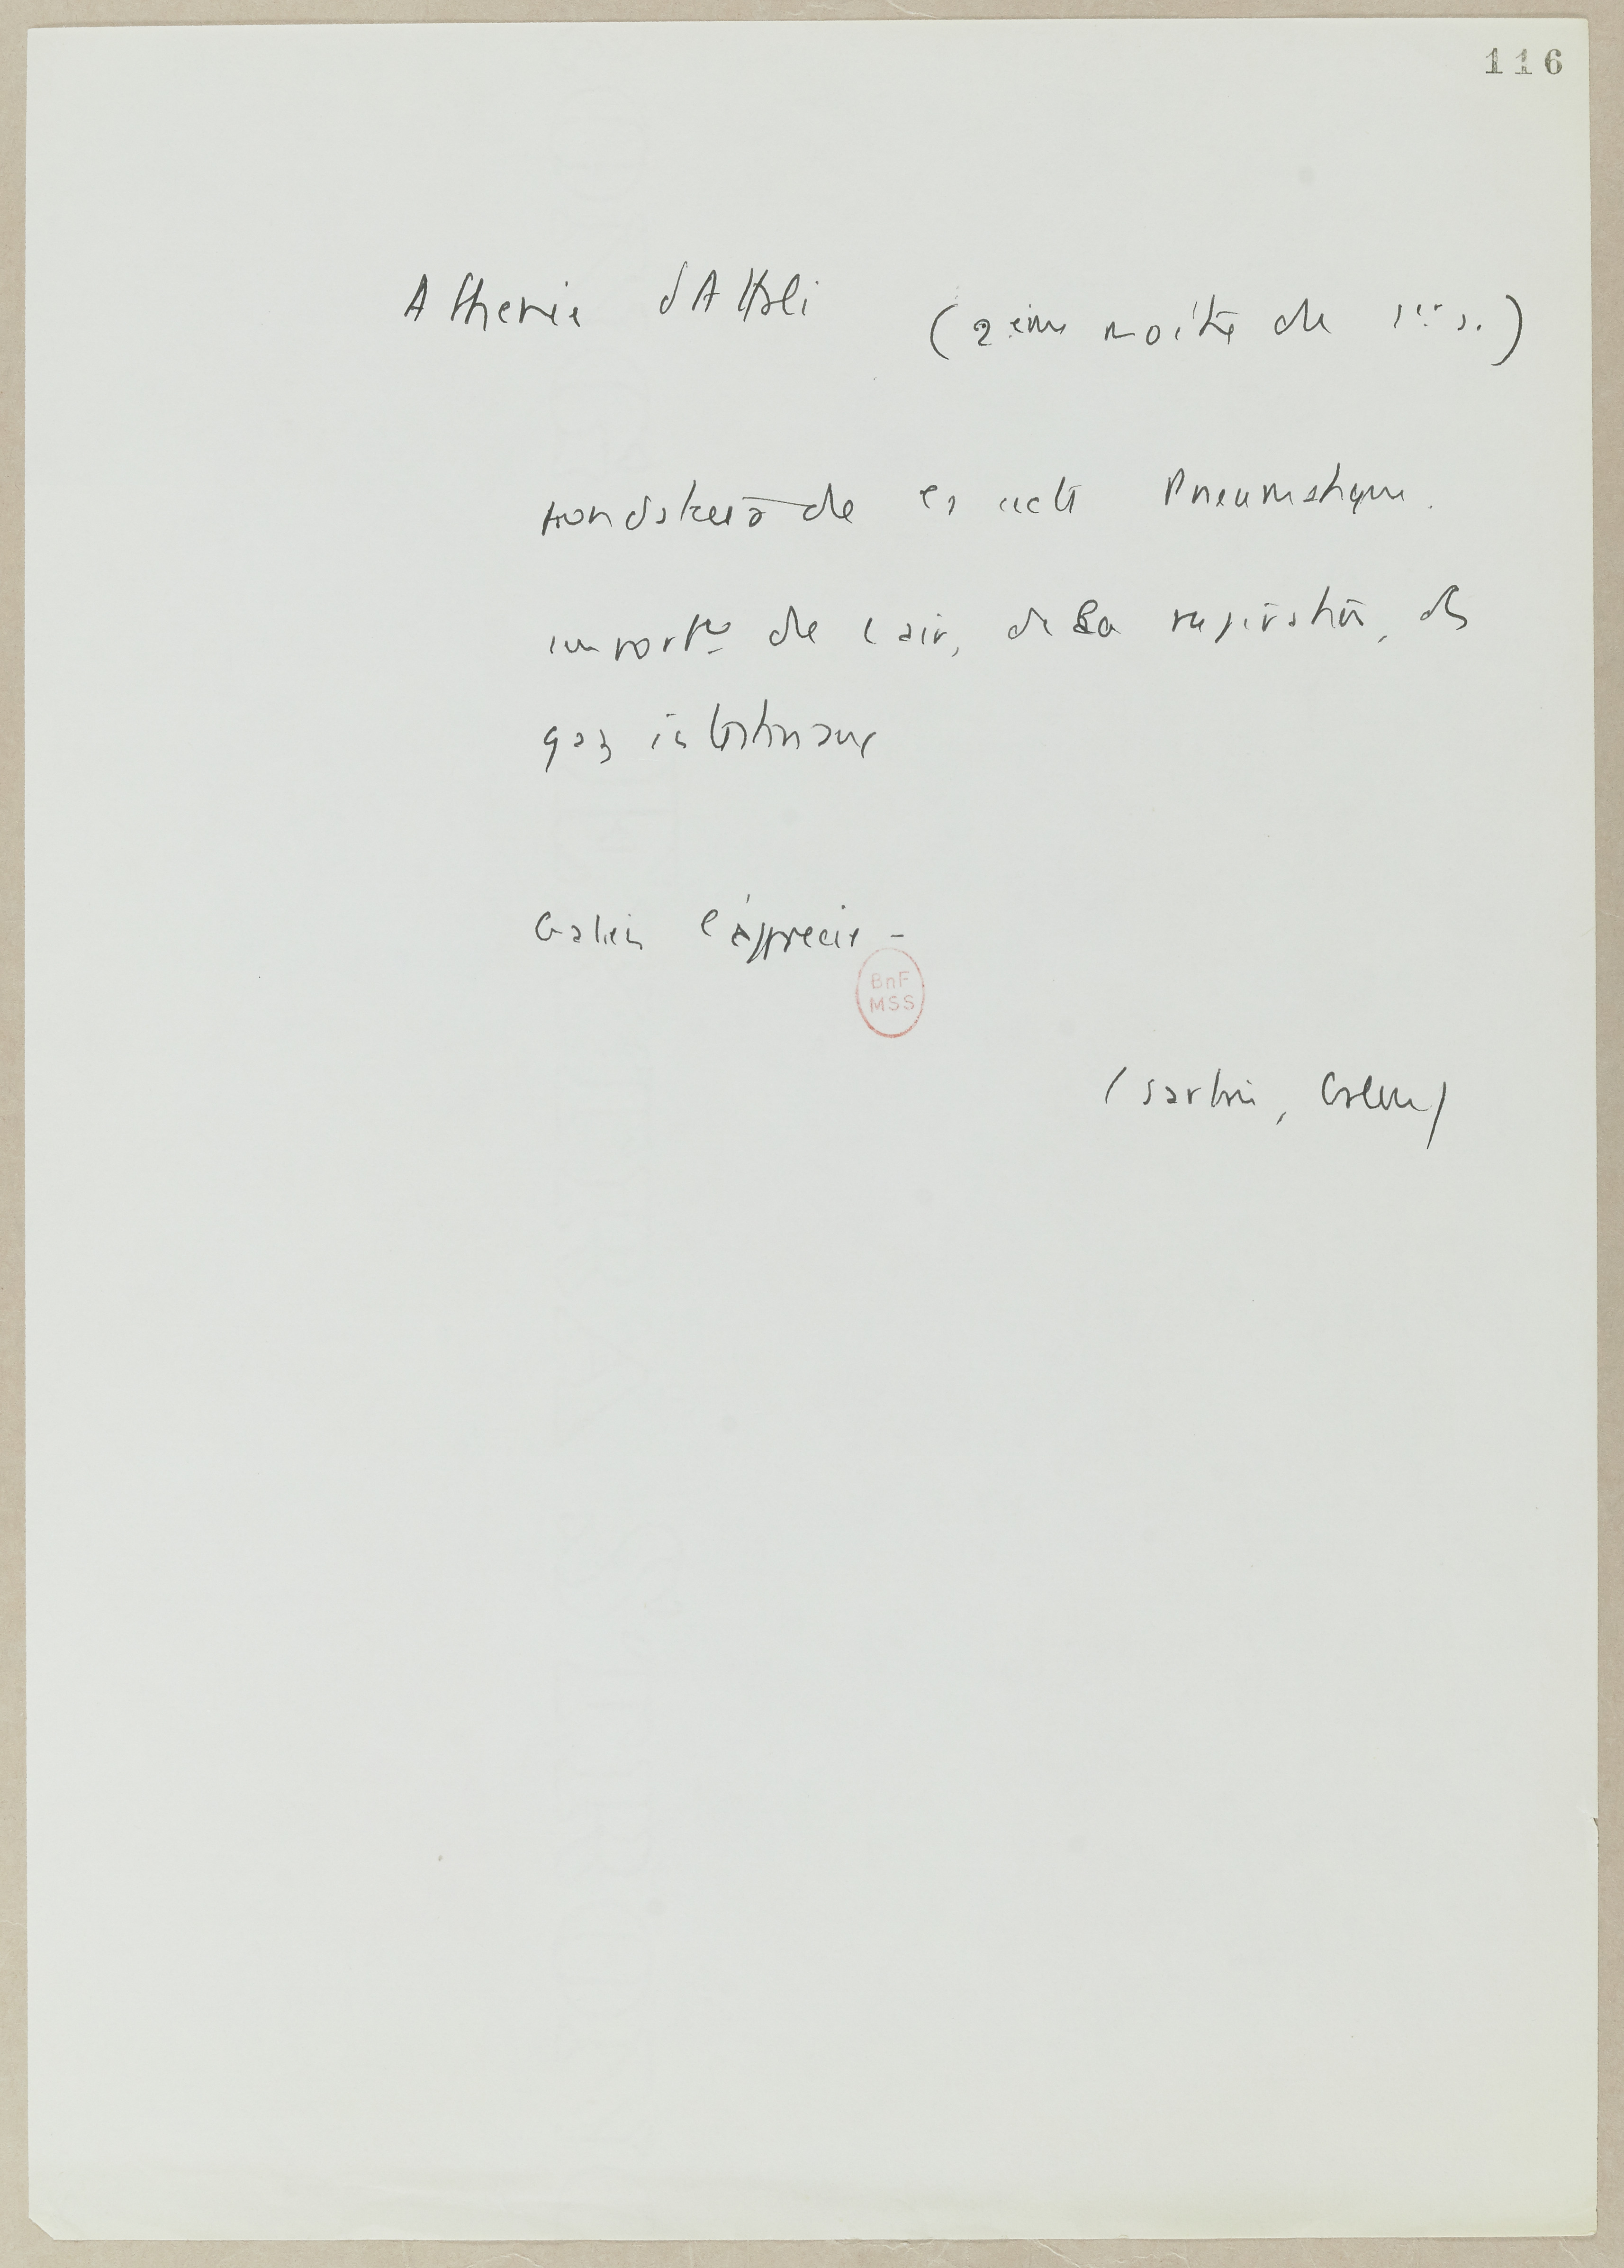 116
Athenée d'Attali (2ème moitié de 1er s.)
Fondateur de la secte Pneumatique.
import^ce de l'air, de la respiration, des
gaz intestinaux
Galien l'apprécie -
BnF
MSS
(Sarton, Galen)